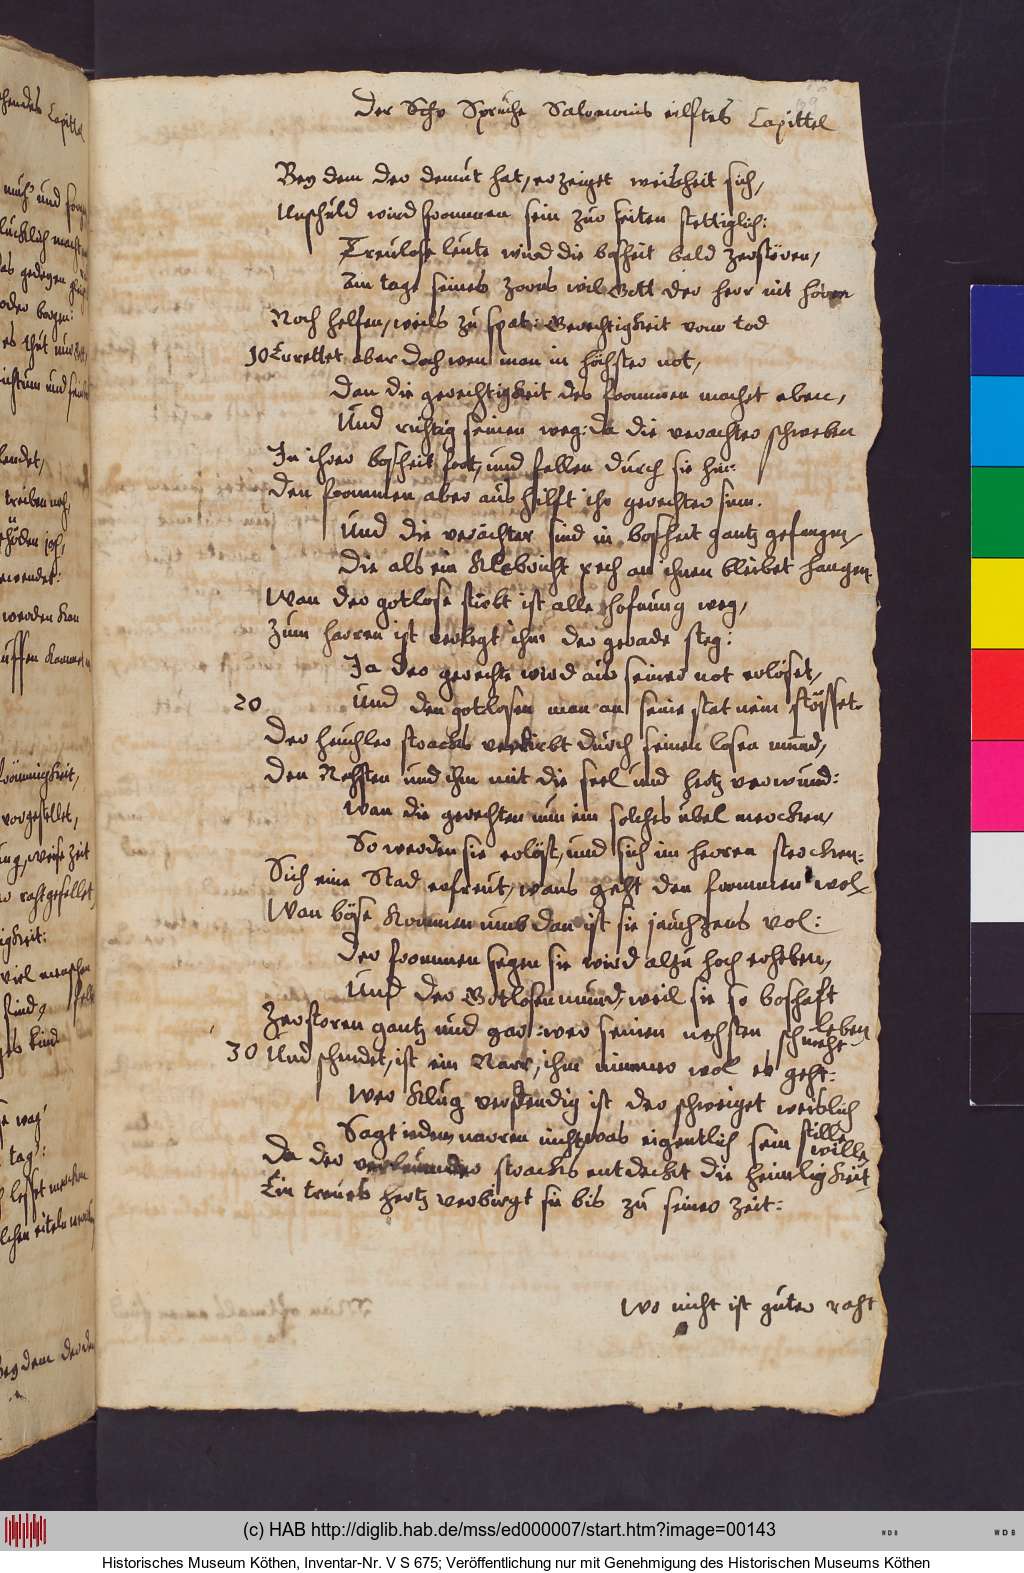 Der Sch. Sprüche Salomonis eilftes Capittel
Bey dem der demut hat, erzeiget weisheit sich,
Unschuld wird frommen sein zur seiten stettiglich:
Treulose leute wird die bosheit bald zerstören,
Am tage seines zorns wil Gott der herr nit hören
Noch helfen, weils zu spat: Gerechtigkeit vom tod
10 Errettet aber doch wen man in höchster not,
Dan die gerechtigkeit des frommen machet eben,
Und richtig seinen weg: da die verachter schweben
In ihrer bosheit fort, und fallen durch sie hin:
Den frommen aber aus hilft ihr gerechter sinn.
Und die verächter sind in bosheit gantz gefangen,
Die als ein klebricht pech an ihnen bleibet hangen
Wan der gotlose stirbt ist alle hofnung weg,
Zum harren ist verlegt ihm der gerade steg:
Ja der gerechte wird aus seiner not erlöset,
20 Und den gotlosen man an seine stat nein stösset.
Der heuchler stracks verdirbt durch seinen losen mund,
Den Nehsten und ihm mit die seel und hertz verwund:
Wan die gerechten nun ein solches übel mercken,
So werden sie erlöst, und sich im herren stercken:
Sich eine Stad erfreut, wans geht den frommen wol
Wan böse kommen umb dan ist sie jauchzens vol:
Der frommen segen sie wird alzu hoch erheben,
Und der Gotlosen mund, weil sie so boshaft
leben
Zerstoren gantz und gar: wer seinen nehsten schmeht
30 Und schendet, ist ein Narr, ihm nimmer wol es geht:
Wer klug verstendig ist der schweiget weislich
stille
Sagt iedem narren nicht, was eigentlich sein
wille
Da der verleumder stracks entdeckt die heimligkeit,
Ein treues hertz verbirgt sie bis zu seiner zeit:
Wo nicht ist guter raht
(c) HAB http://diglib.hab.de/mss/ed000007/start.htm?image=00143
Historisches Museum Köthen, Inventar-Nr. V S 675; Veröffentlichung nur mit Genehmigung des Historischen Museums Köthen